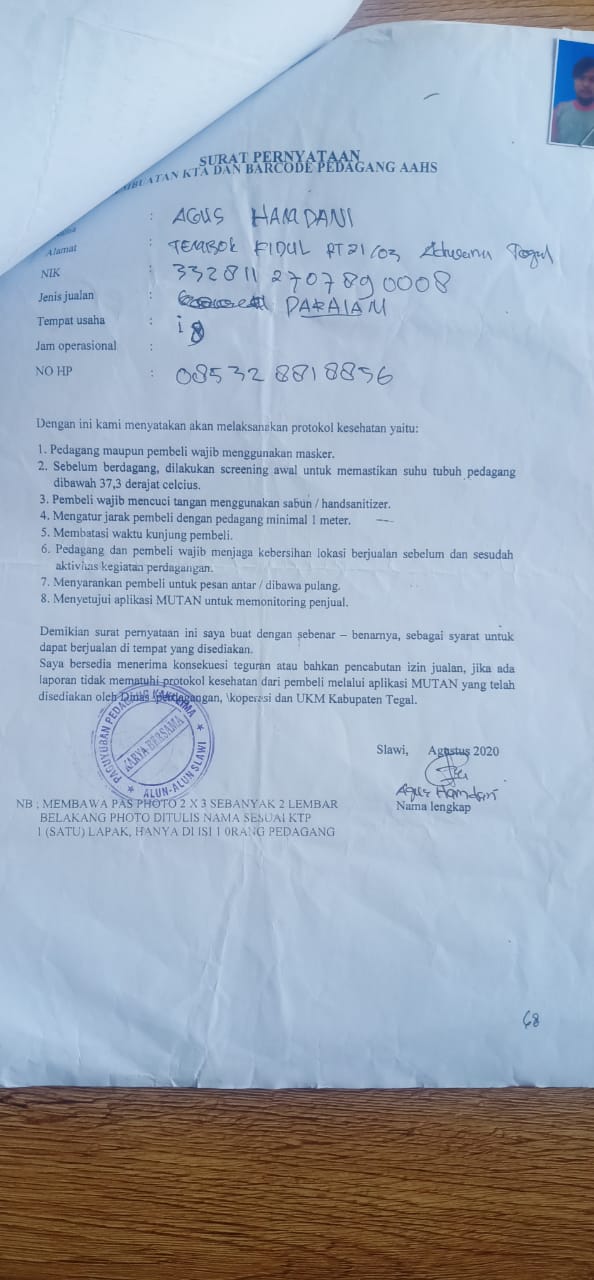 SURAT PERNYATAAN
BUATAN KTA DAN BARCODE PEDAGANG AAHS
: AGUS HAMDANI
Alamat : TEMBOK KIDUL RT 21/03 Adiwerna Tegal
NIK : 3328112707890008
Jenis jualan : PAKAIAN
Tempat usaha :
Jam operasional :
NO HP : 085328818856
Dengan ini kami menyatakan akan melaksanakan protokol kesehatan yaitu:
1. Pedagang maupun pembeli wajib menggunakan masker.
2. Sebelum berdagang, dilakukan screening awal untuk memastikan suhu tubuh pedagang
dibawah 37,3 derajat celcius.
3. Pembeli wajib mencuci tangan menggunakan sabun / handsanitizer.
4. Mengatur jarak pembeli dengan pedagang minimal 1 meter.
5. Membatasi waktu kunjung pembeli.
6. Pedagang dan pembeli wajib menjaga kebersihan lokasi berjualan sebelum dan sesudah
aktivitas kegiatan perdagangan.
7. Menyarankan pembeli untuk pesan antar / dibawa pulang.
8. Menyetujui aplikasi MUTAN untuk memonitoring penjual.
Demikian surat pernyataan ini saya buat dengan sebenar – benarnya, sebagai syarat untuk
dapat berjualan di tempat yang disediakan.
Saya bersedia menerima konsekuesi teguran atau bahkan pencabutan izin jualan, jika ada
laporan tidak mematuhi protokol kesehatan dari pembeli melalui aplikasi MUTAN yang telah
disediakan oleh Dinas perdagangan, \koperasi dan UKM Kabupaten Tegal.
PAGUYUBAN PEDAGANG KAKI LIMA
KARYA BERSAMA
ALUN-ALUN SLAWI
Slawi, Agustus 2020
Agus Hamdani
Nama lengkap
NB ; MEMBAWA PAS PHOTO 2 X 3 SEBANYAK 2 LEMBAR
BELAKANG PHOTO DITULIS NAMA SESUAI KTP
1 (SATU) LAPAK, HANYA DI ISI 1 0RANG PEDAGANG
68